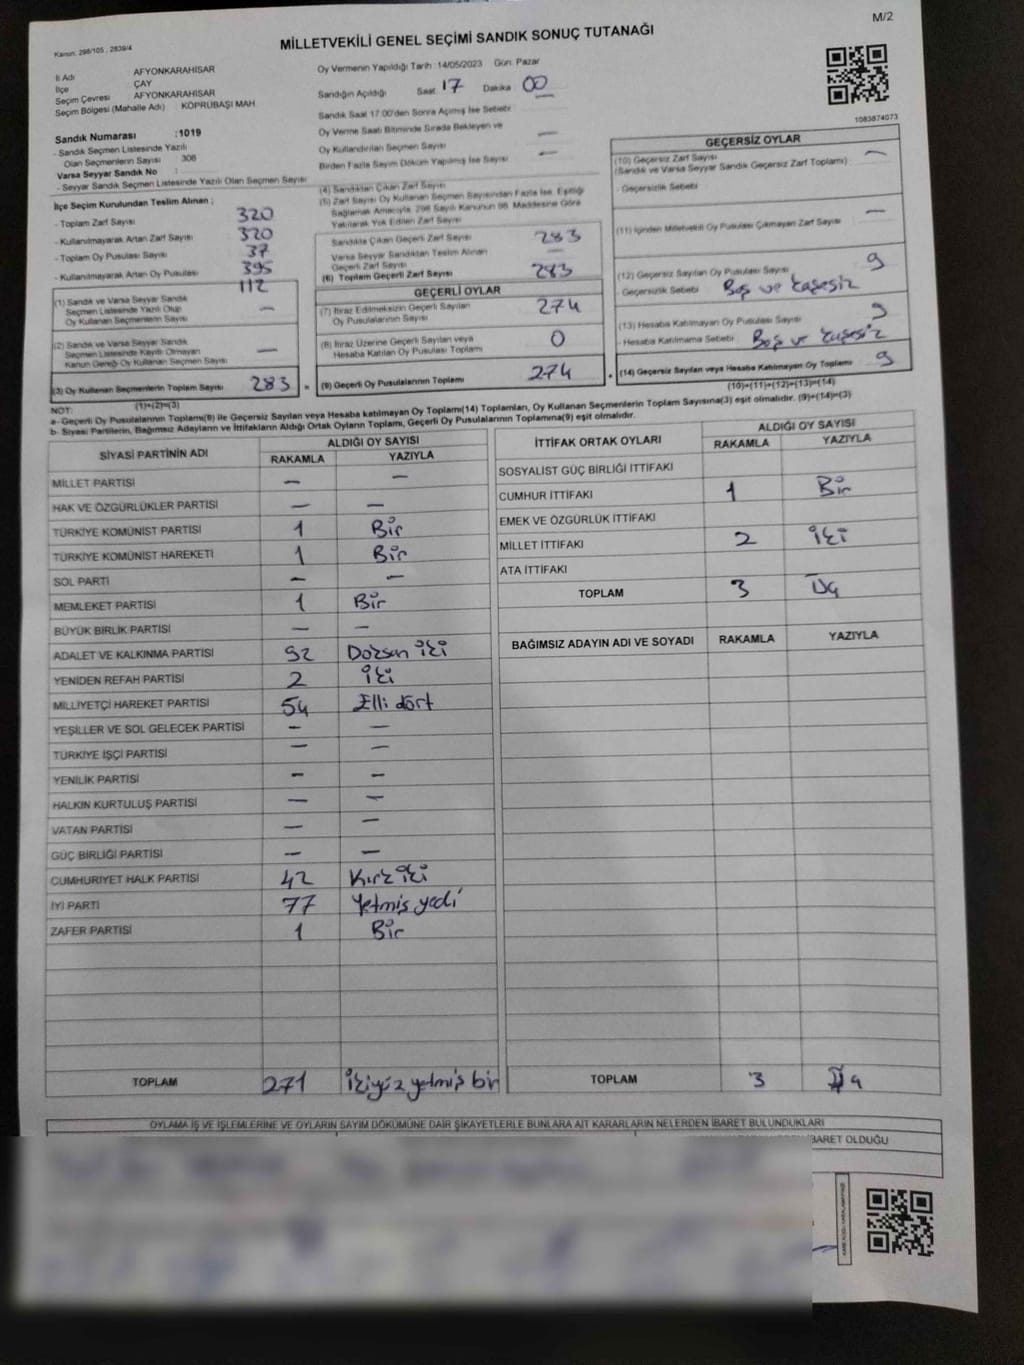 M/2
Kanun: 298/105 , 2839/4
MİLLETVEKİLİ GENEL SEÇİMİ SANDIK SONUÇ TUTANAĞI
İl Adı : AFYONKARAHİSAR
İlçe : ÇAY
Seçim Çevresi : AFYONKARAHİSAR
Seçim Bölgesi (Mahalle Adı) : KÖPRÜBAŞI MAH
Oy Vermenin Yapıldığı Tarih :14/05/2023 Gün: Pazar
Sandığın Açıldığı Saat 17 Dakika 00
Sandık Saat 17.00'den Sonra Açımış İse Sebebi
Oy Verme Saati Bitiminde Sırada Bekleyen ve
Oy Kullandırılan Seçmen Sayısı —
Birden Fazla Sayım Döküm Yapılmış İse Sayısı —
1083874073
Sandık Numarası :1019
- Sandık Seçmen Listesinde Yazılı
Olan Seçmenlerin Sayısı : 308
Varsa Seyyar Sandık No :
- Seyyar Sandık Seçmen Listesinde Yazılı Olan Seçmen Sayısı
İlçe Seçim Kurulundan Teslim Alınan ;
- Toplam Zarf Sayısı 320
- Kullanılmayarak Artan Zarf Sayısı 320
37
- Toplam Oy Pusulası Sayısı 395
- Kullanılmayarak Artan Oy Pusulası 112
(1) Sandık ve Varsa Seyyar Sandık
Seçmen Listesinde Yazılı Olup
Oy Kullanan Seçmenlerin Sayısı —
(2) Sandık ve Varsa Seyyar Sandık
Seçmen Listesinde Kayıtlı Olmayan
Kanun Gereği Oy Kullanan Seçmen Sayısı —
(3) Oy Kullanan Seçmenlerin Toplam Sayısı 283
(1)+(2)=(3)
(4) Sandıktan Çıkan Zarf Sayısı
(5) Zarf Sayısı Oy Kullanan Seçmen Sayısından Fazla İse, Eşitliği
Sağlamak Amacıyla, 298 Sayılı Kanunun 98. Maddesine Göre
Yakılarak Yok Edilen Zarf Sayısı
Sandıkta Çıkan Geçerli Zarf Sayısı 283
Varsa Seyyar Sandıktan Teslim Alınan
Geçerli Zarf Sayısı —
(6) Toplam Geçerli Zarf Sayısı 283
GEÇERLİ OYLAR
(7) İtiraz Edilmeksizin Geçerli Sayılan
Oy Pusulalarının Sayısı 274
(8) İtiraz Üzerine Geçerli Sayılan veya
Hesaba Katılan Oy Pusulası Toplamı 0
= (9) Geçerli Oy Pusulalarının Toplamı 274
GEÇERSİZ OYLAR
(10) Geçersiz Zarf Sayısı
(Sandık ve Varsa Seyyar Sandık Geçersiz Zarf Toplamı) —
- Geçersizlik Sebebi :
(11) İçinden Milletvekili Oy Pusulası Çıkmayan Zarf Sayısı —
(12) Geçersiz Sayılan Oy Pusulası Sayısı 9
- Geçersizlik Sebebi Boş ve kaşesiz
(13) Hesaba Katılmayan Oy Pusulası Sayısı 9
- Hesaba Katılmama Sebebi : Boş ve kaşesiz
+ (14) Geçersiz Sayılan veya Hesaba Katılmayan Oy Toplamı 9
(10)+(11)+(12)+(13)=(14)
NOT:
a- Geçerli Oy Pusulaları Toplamı(9) ile Geçersiz Sayılan veya Hesaba katılmayan Oy Toplamı(14) Toplamları, Oy Kullanan Seçmenlerin Toplam Sayısına(3) eşit olmalıdır. (9)+(14)=(3)
b- Siyasi Partilerin, Bağımsız Adayların ve İttifakların Aldığı Ortak Oyların Toplamı, Geçerli Oy Pusulalarının Toplamına(9) eşit olmalıdır.
SİYASİ PARTİNİN ADI ALDIĞI OY SAYISI
RAKAMLA YAZIYLA
MİLLET PARTİSİ — —
HAK VE ÖZGÜRLÜKLER PARTİSİ — —
TÜRKİYE KOMÜNİST PARTİSİ 1 Bir
TÜRKİYE KOMÜNİST HAREKETİ 1 Bir
SOL PARTİ — —
MEMLEKET PARTİSİ 1 Bir
BÜYÜK BİRLİK PARTİSİ — —
ADALET VE KALKINMA PARTİSİ 92 Doksan iki
YENİDEN REFAH PARTİSİ 2 iki
MİLLİYETÇİ HAREKET PARTİSİ 54 Elli dört
YEŞİLLER VE SOL GELECEK PARTİSİ — —
TÜRKİYE İŞÇİ PARTİSİ — —
YENİLİK PARTİSİ — —
HALKIN KURTULUŞ PARTİSİ — —
VATAN PARTİSİ — —
GÜÇ BİRLİĞİ PARTİSİ — —
CUMHURİYET HALK PARTİSİ 42 Kırk iki
İYİ PARTİ 77 Yetmiş yedi
ZAFER PARTİSİ 1 Bir
TOPLAM 271 ikiyüz yetmiş bir
İTTİFAK ORTAK OYLARI ALDIĞI OY SAYISI
RAKAMLA YAZIYLA
SOSYALİST GÜÇ BİRLİĞİ İTTİFAKI
CUMHUR İTTİFAKI 1 Bir
EMEK VE ÖZGÜRLÜK İTTİFAKI
MİLLET İTTİFAKI 2 iki
ATA İTTİFAKI
TOPLAM 3 Üç
BAĞIMSIZ ADAYIN ADI VE SOYADI RAKAMLA YAZIYLA
TOPLAM 3 Üç
OYLAMA İŞ VE İŞLEMLERİNE VE OYLARIN SAYIM DÖKÜMÜNE DAİR ŞİKAYETLERLE BUNLARA AİT KARARLARIN NELERDEN İBARET BULUNDUKLARI
İBARET OLDUĞU